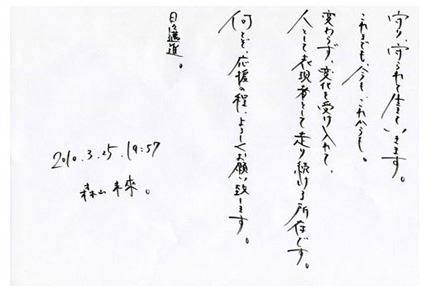 守り、守られて生きていきます。
これまでも、今も、これからも。
変わらず、変化を受け入れて、
人として表現者として走り続ける所存です。
何とぞ、応援の程、よろしくお願い致します。
日々邁進。
2010.3.25.19:57
森山未來。